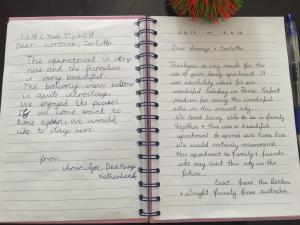 Dear Lorenzo, Carlotta
The apartment is very
nice and the furniture
is very beautiful.
The balcony view below
is quite interesting.
We enjoyed the
If we come back to
Rome again, we would
like to stay here
from
Netherland
Dear Lorenzo + Carlotta
Thankyou so very much for the
use of your lovely apartment. It
was absolutely ideal for our
wonderful holiday in Rome. Perfect
position for seeing the wonderful
sites in this ancient city.
We loved being able to be a family
together & this was a beautiful
apartment to spend each time here
We would certainly recommend
this apartment to family & friends
who may visit this city in the
future.
from the Burden
+ Wright family from Australia.